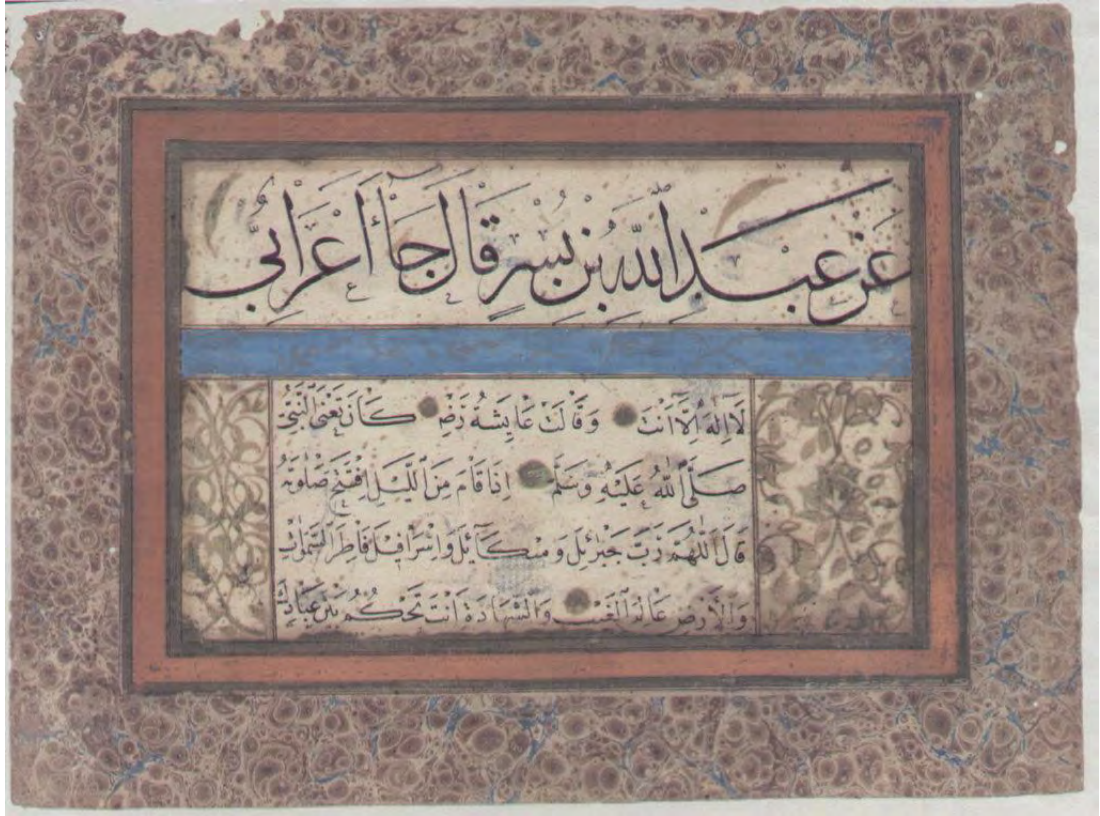 عَنْ عَبْدِ اللّٰهِ بْنِ بُسْرٍ قَالَ جَاءَ أَعْرَابِيٌّ
لَا اِلٰهَ اِلَّا اَنْتَ وَقَالَتْ عَايِشَةُ رَضِ كَانَ تَعْنِى النَّبِىَّ
صَلَّى اللّٰهُ عَلَيْهِ وَسَلَّمَ اِذَا قَامَ مِنَ اللَّيْلِ اِفْتَتَحَ صَلٰوتَهُ
قَالَ اَللّٰهُمَّ رَبَّ جَبْرَئِلَ وَمِيْكَآئِلَ وَاِسْرَافِيْلَ فَاطِرَ السَّمٰوَاتِ
وَالْاَرْضِ عَالِمَ الْغَيْبِ وَالشَّهَادَةِ اَنْتَ تَحْكُمُ بَيْنَ عِبَادِكَ